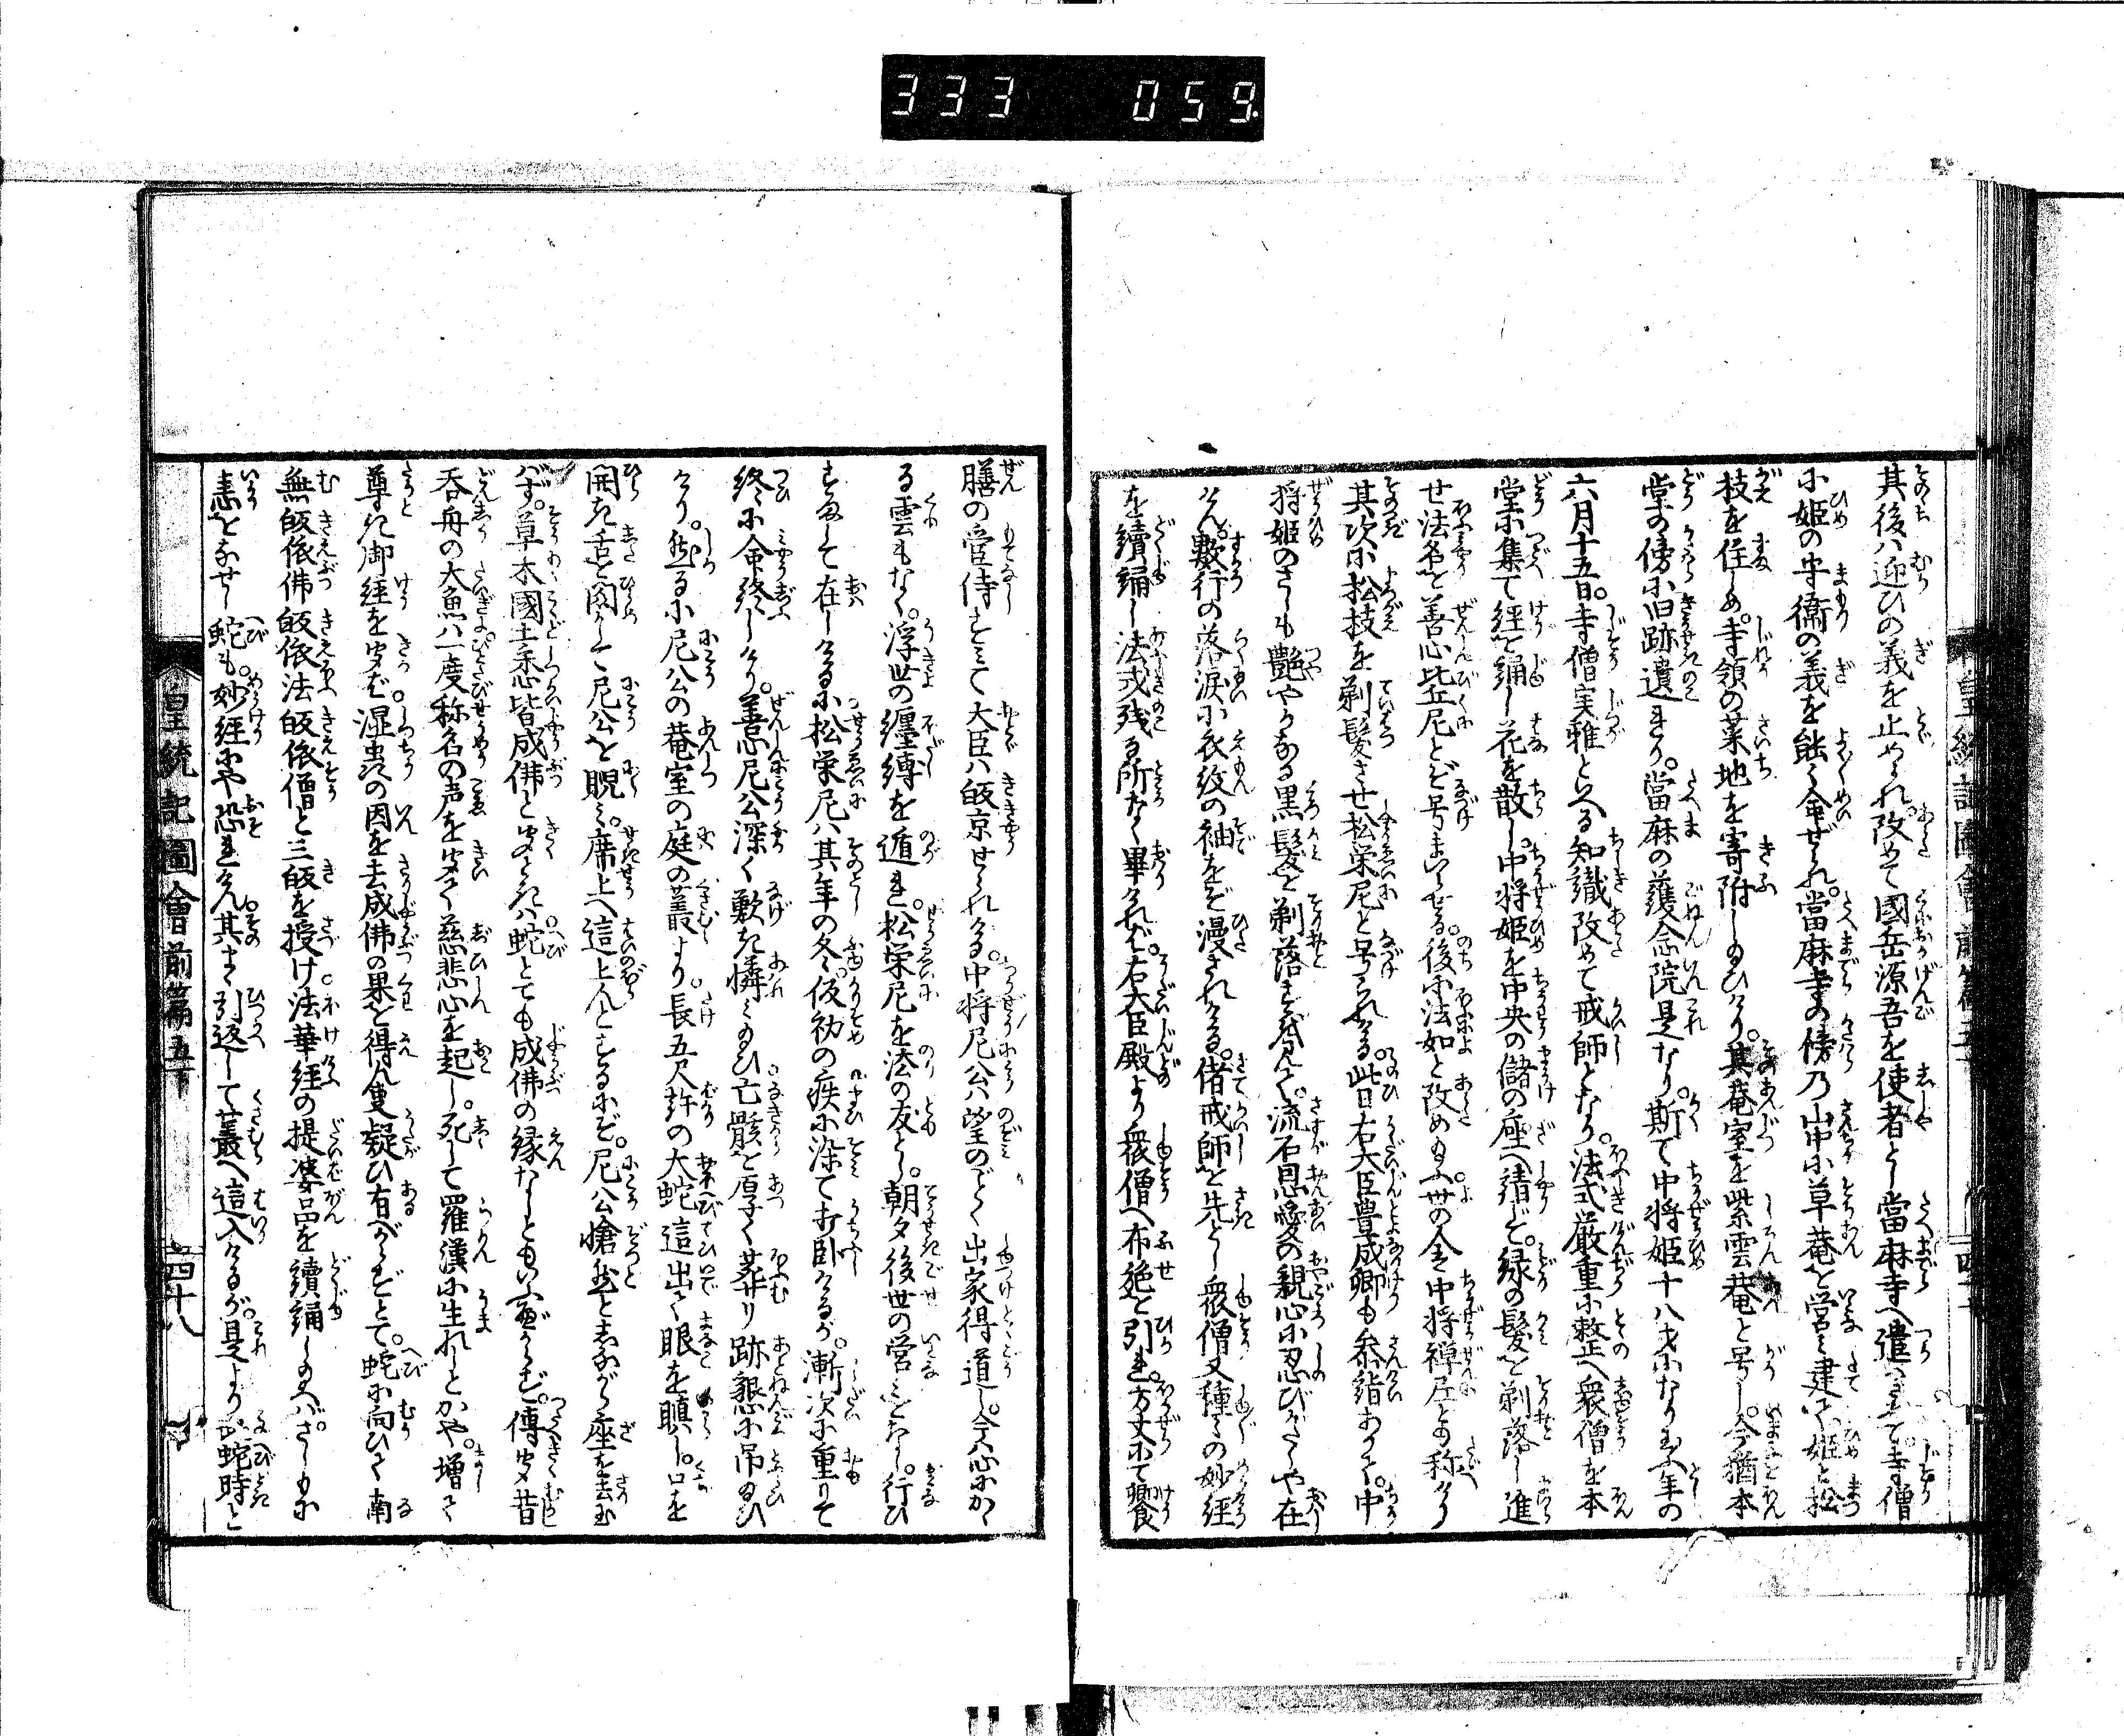 333 059
其後ハ迎ひの義を止められ改めて國岳源吾を使者とし當麻寺へ遣ハされて寺僧
に姫の守衛の義を能々命ぜられ當麻寺の傍乃山中に草菴を営ミ建て姫と松
枝を住しめ寺領の菜地を寄附し給ひけり其菴室を紫雲菴と号し今猶本
堂の傍に旧跡遺れり當麻の護念院是なり斯て中将姫十八才になり給ふ年の
六月十五日寺僧実雅といへる知識改めて戒師となり法式厳重に整へ衆僧を本
堂に集て経を誦し花を散し中将姫を中央の儲の座へ請じ緑の髪を剃落し進
せ法名を善心比丘尼とぞ号まいらせる後に法如と改め給ふ世の人中将禅尼とも称へけり
其次に松枝を剃髪させ松栄尼と号られける此日右大臣豊成卿も参詣ありて中
将姫のさしも艶やかなる黒髪を剃落すを見て流石恩愛の親心に忍びがたくや在
けん数行の落涙に衣紋の袖をぞ漫されける偖戒師を先とし衆僧又種々の妙経
を續誦し法式残る所なく畢ければ右大臣殿より衆僧へ布施を引れ方丈にて饗食
膳の管侍すミて大臣ハ皈京せられける中将尼公ハ望のごとく出家得道し今ハ心にかゝ
る雲もなく浮世の纏縛を遁れ松栄尼を法の友とし朝夕後世の営ミをなし行ひ
すまして在しけるに松栄尼ハ其年の冬仮初の疾に染て打臥けるが漸次に重りて
終に命終しけり善心尼公深く歎き憐ミ給ひ亡骸を厚く葬り跡懇に吊ひ給ひ
けり然るに尼公の菴室の庭の叢より長五尺許の大蛇這出て眼を瞋し口を
開き舌を閃かして尼公を睨ミ席上へ這上んとするにぞ尼公愴然としながら座を去給
ハず草木國土悉皆成佛と聞ときハ蛇とても成佛の縁なしともいふべからず傳聞昔
呑舟の大魚ハ一度称名の声を聞て慈悲心を起し死して羅漢に生れしとかや増て
尊き御経を聞バ湿虫類の因を去成佛の果を得ん事疑ひ有べからずとて蛇に向ひて南
無皈依佛皈依法皈依僧と三皈を授け法華経の提婆品を續誦し給へバさしもに
恚をなせし蛇も妙経にや恐れけん其まゝ引返して叢へ這入けるが是より此蛇時と
皇統記圖會前篇五下
四十八